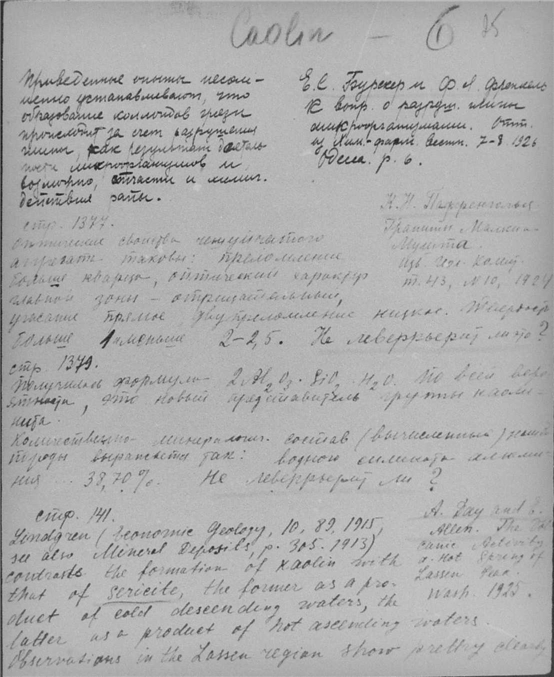 Caolin — 1 75
Приведенные опыты несом-
ненно устанавливают, что
образование коллоидов грязи
происходит за счет разрушения
глины, как результат деятель-
ности микроорганизмов и,
возможно, отчасти и химич.
действия рапы.
Е.С. Бурксер и Ф. Л. Френкель
К вопр. о разруш. глины
микроорганизмами. Отт.
из Хим.-фарм. вестн. 7-8. 1926
Одесса. p. 6.
стр. 1377.
Оптические свойства чешуйчатого
агрегата таковы: преломление
больше кварца, оптический характер
главной зоны — отрицательный,
угасание прямое, двупреломление низкое.
больше 1 меньше 2-2,5. Не леверрьерит ли это?
К.Н.
Граниты
т. 43, N 10, 1924
стр. 1379.
Получилась формула 2Al2O3·SiO2·H2O. По всей веро-
ятности, это новый представитель группы каоли-
нита.
Количественно минералогич. состав (вычисленный)
породы выражается так: водного силиката алюми-
ния ... 38,70%. Не леверрьерит ли?
стр. 141.
Lindgren (Economic Geology, 10, 89, 1915,
see also Mineral Deposits, p. 305. 1913)
contrasts the formation of kaolin with
that of sericite, the former as a pro-
duct of cold descending waters, the
latter as a product of hot ascending waters.
Observations in the Lassen region show pretty clearly
A. Day and E.
Allen. The Vol-
canic Activity
a. Hot Springs of
Lassen Peak.
Wash. 1925.